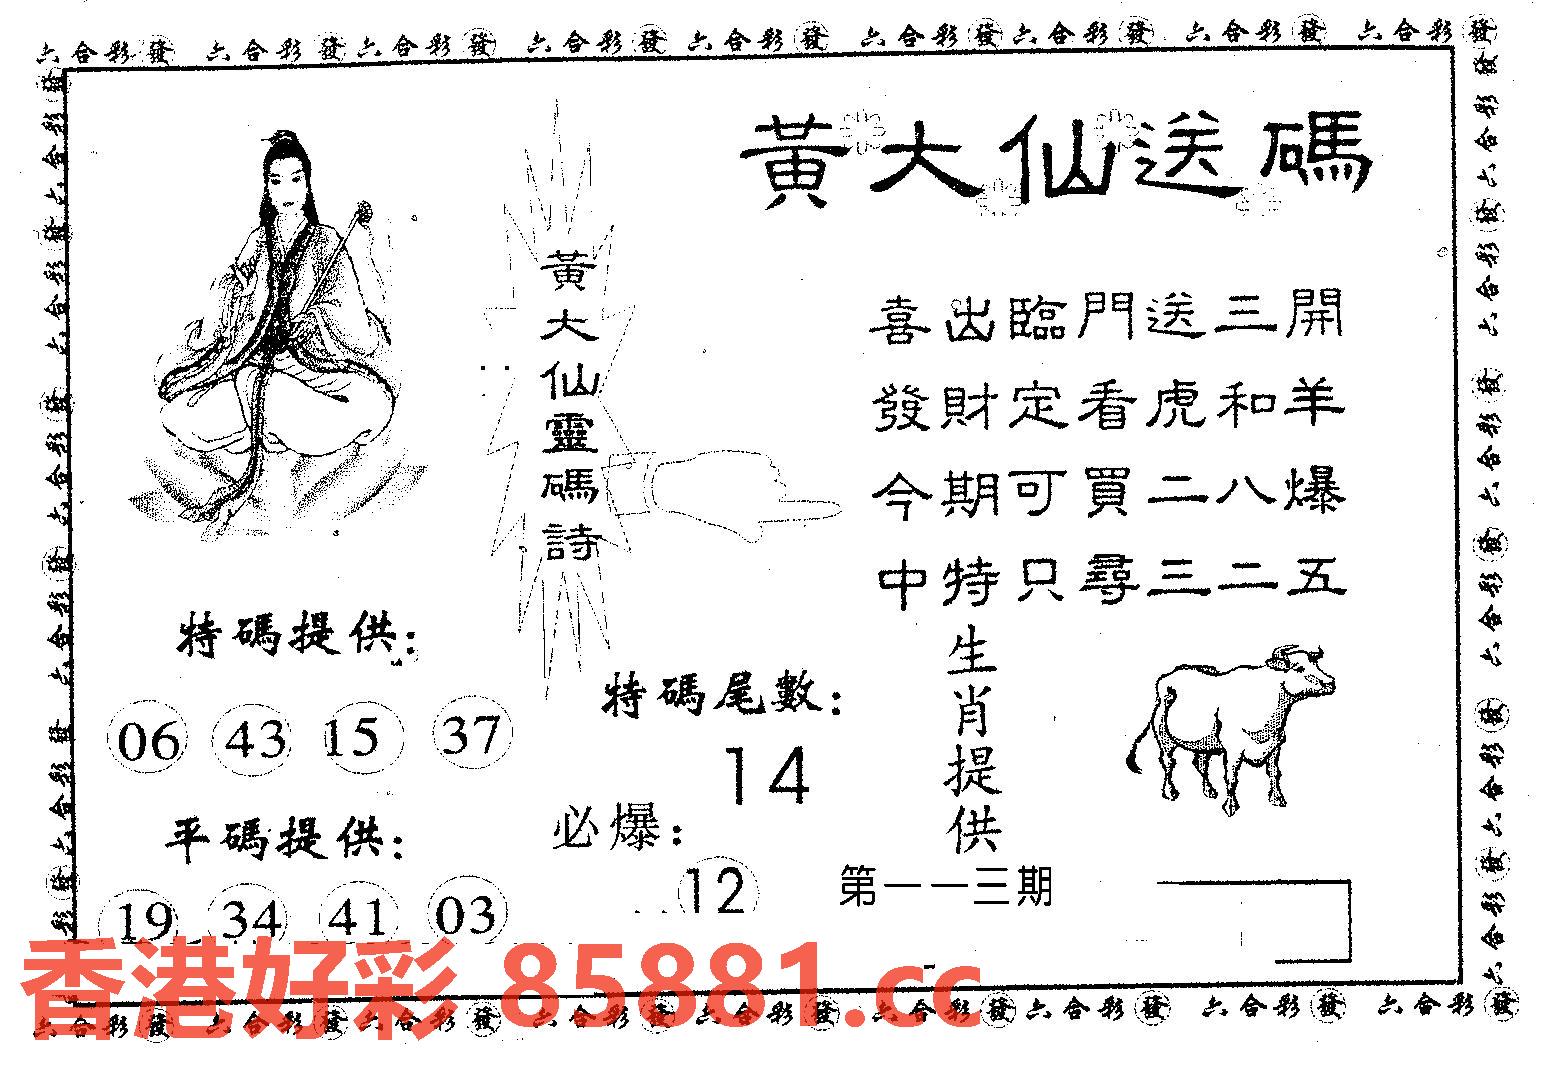 六合彩發 六合彩發 六合彩發 六合彩發 六合彩發 六合彩發 六合彩發 六合彩發 六合彩發
黃大仙送碼
黃大仙靈碼詩
喜出臨門送三開
發財定看虎和羊
今期可買二八爆
中特只尋三二五
特碼提供：
06 43 15 37
平碼提供：
19 34 41 03
特碼尾數：
14
必爆：
12
生肖提供
第一一三期
香港好彩 85881.cc
六合彩發 六合彩發 六合彩發 六合彩發 六合彩發 六合彩發 六合彩發 六合彩發 六合彩發